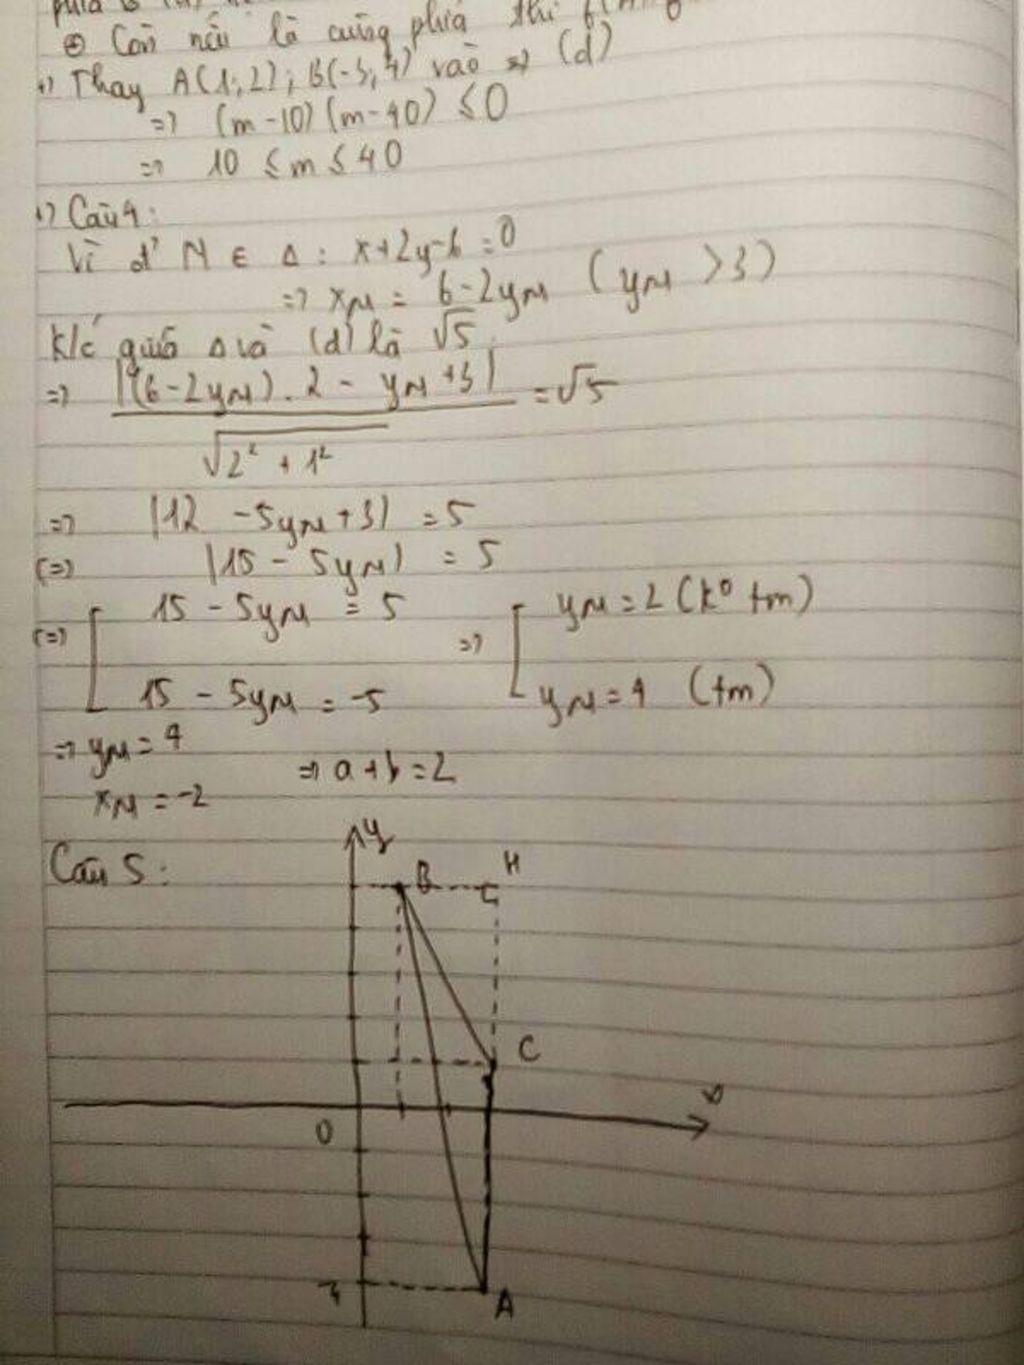 ⊕ Còn nếu là cùng phía thì
+) Thay A(1;2); B(-3;4) vào => (d)
=> (m-10)(m-40) ≤ 0
=> 10 ≤ m ≤ 40
+) Câu 4:
Vì đ' M ∈ Δ: x+2y-6=0
=> xM = 6-2yM (yM > 3)
K/c giữa Δ và (d) là √5
=> |(6-2yM).2 - yM+3| = √5
√2² + 1²
=> |12 -5yM+3| = 5
(=) |15 - 5yM| = 5
15 - 5yM = 5
yM = 2 (kº tm)
(=) =>
15 - 5yM = -5
yM = 4 (tm)
=> yM = 4
xM = -2 => a+b=2
Câu 5: y
B H
C
x
O
A